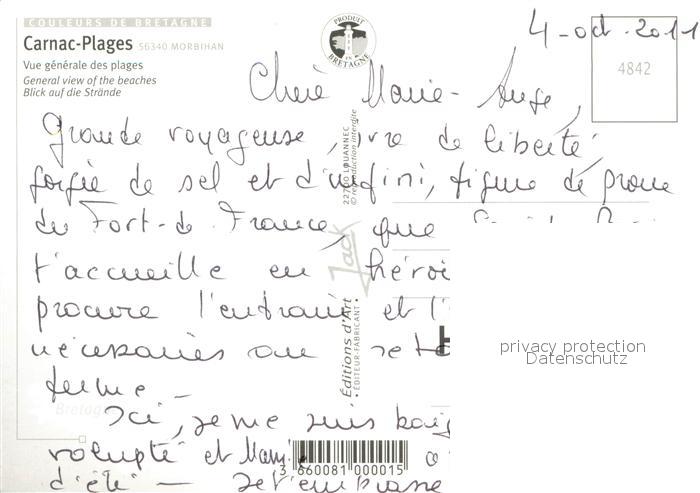 COULEURS DE BRETAGNE
Carnac-Plages 56340 MORBIHAN
Vue générale des plages
General view of the beaches
Blick auf die Strände
PRODUIT EN BRETAGNE
4-oct-2011
4842
Chère Marie-Ange,
Grande voyageuse, ivre de liberté
gorgée de sel et d'infini, figure de proue
du Fort-de France, que
t'accueille en héroï
procure l'entrain et l'
nécessaires au reto
ferme_
Ici, je me suis baig
volupté et
d'été — Je t'embrasse
22700 LOUANNEC
© reproduction interdite
Jack
Editions d'Art
• ÉDITEUR-FABRICANT •
Bretagne
3 660081 000015
privacy protection
Datenschutz